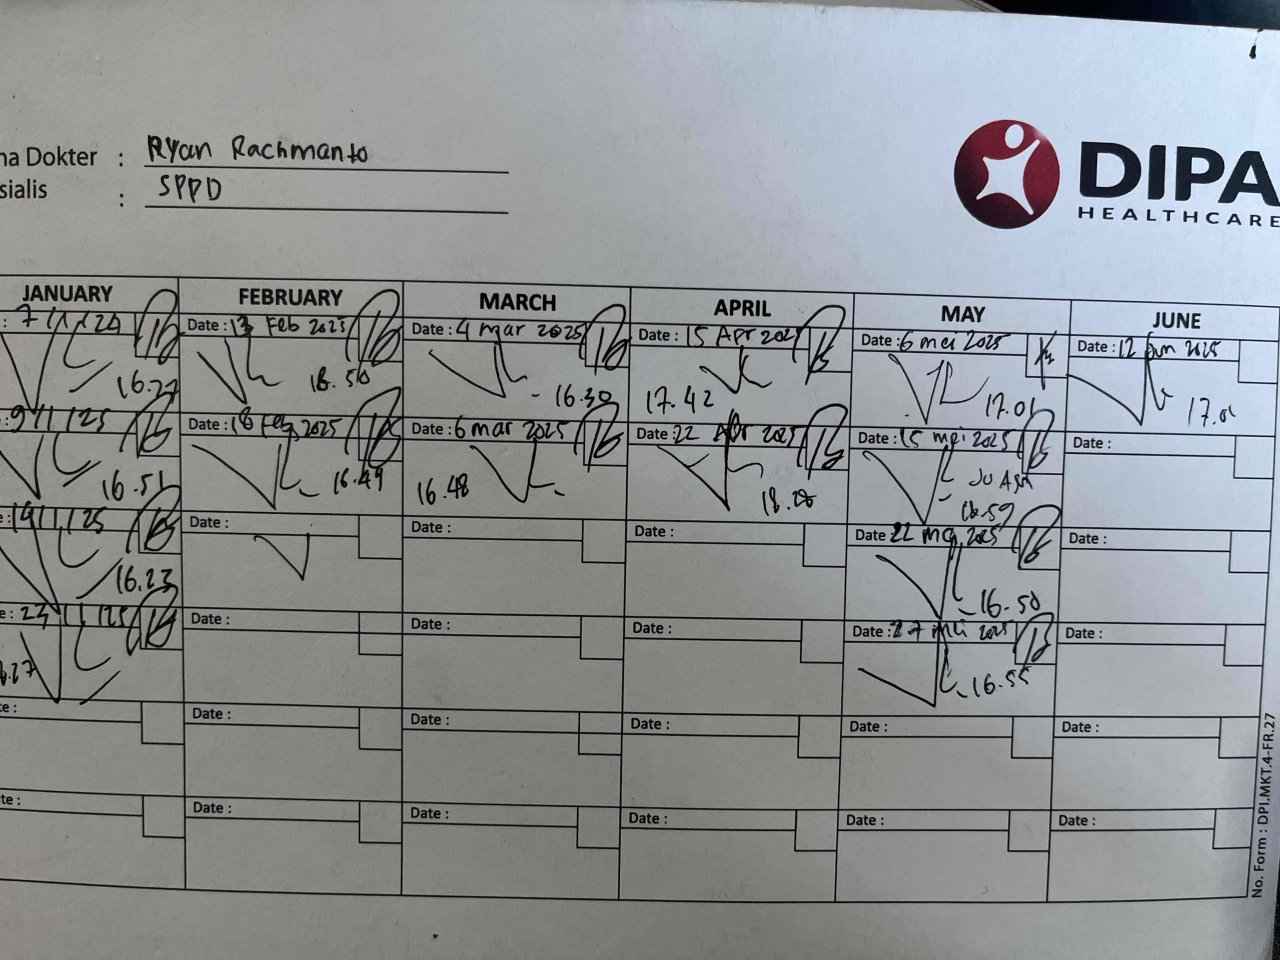 na Dokter : Ryan Rachmanto
sialis : SPPD
DIPA
HEALTHCARE
JANUARY FEBRUARY MARCH APRIL MAY JUNE
: 7/1/25 Date : 13 Feb 2025 Date : 4 mar 2025 Date : 15 Apr 2025 Date : 6 mei 2025 Date : 12 jun 2025
16.27 16.50 16.30 17.42 17.01 17.01
: 9/1/25 Date : 18 Feb 2025 Date : 6 mar 2025 Date : 22 Apr 2025 Date : 15 mei 2025 Date :
16.51 16.49 16.48 18.28 16.59
e : 14/1/25 Date : Date : Date : Date 22 mei 2025 Date :
16.23 16.50
e : 23/1/25 Date : Date : Date : Date : 27 mei 2025 Date :
6.27 16.55
te : Date : Date : Date : Date : Date :
te : Date : Date : Date : Date : Date :
No. Form : DPI.MKT.4-FR.27